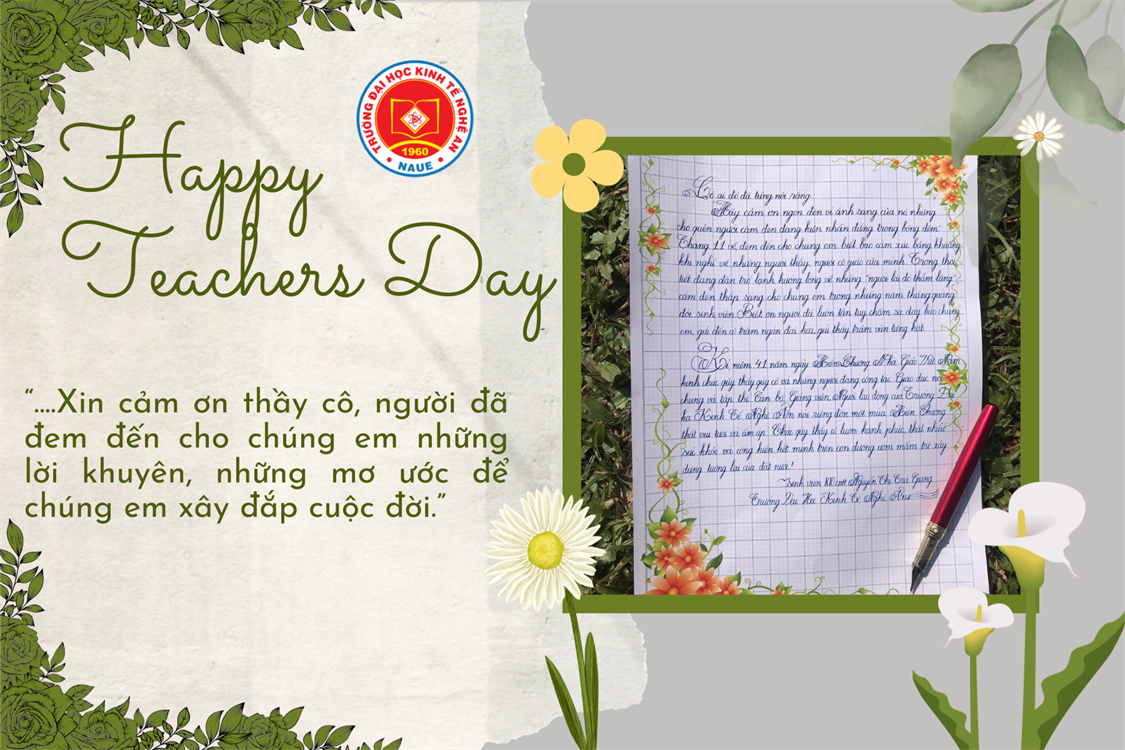 Happy
Teachers Day
TRƯỜNG ĐẠI HỌC KINH TẾ NGHỆ AN
1960
NAUE
“....Xin cảm ơn thầy cô, người đã
đem đến cho chúng em những
lời khuyên, những mơ ước để
chúng em xây đắp cuộc đời.”
Có ai đó đã từng nói rằng:
"Hãy cảm ơn ngọn đèn vì ánh sáng của nó nhưng
chớ quên người cầm đèn đang kiên nhẫn đứng trong bóng đêm."
Tháng 11 về, đem đến cho chúng em biết bao cảm xúc bâng khuâng
khi nghĩ về những người thầy, người cô giáo của mình. Trong thời
tiết đang dần trở lạnh hướng lòng về những "người lái đò thầm lặng"
cầm đèn thắp sáng cho chúng em trong những năm tháng quãng
đời sinh viên. Biết ơn người đã luôn tận tụy chăm sóc dạy bảo chúng
em, gửi đến cô trăm ngàn đóa hoa, gửi thầy trăm vạn tiếng hát.
Kỉ niệm 41 năm ngày Hiến Chương Nhà Giáo Việt Nam
kính chúc quý thầy quý cô và những người đang công tác Giáo dục nói
chung và tập thể Cán bộ, Giảng viên, Người lao động của Trường Đại
học Kinh Tế Nghệ An nói riêng đón một mùa Hiến Chương
thật vui tươi và ấm áp. Chúc quý thầy cô luôn hạnh phúc, thật nhiều
sức khỏe và cống hiến hết mình trên con đường ươm mầm trẻ xây
dựng tương lai của đất nước!
Sinh viên Nguyễn Thị Trà Giang
Trường Đại Học Kinh Tế Nghệ An